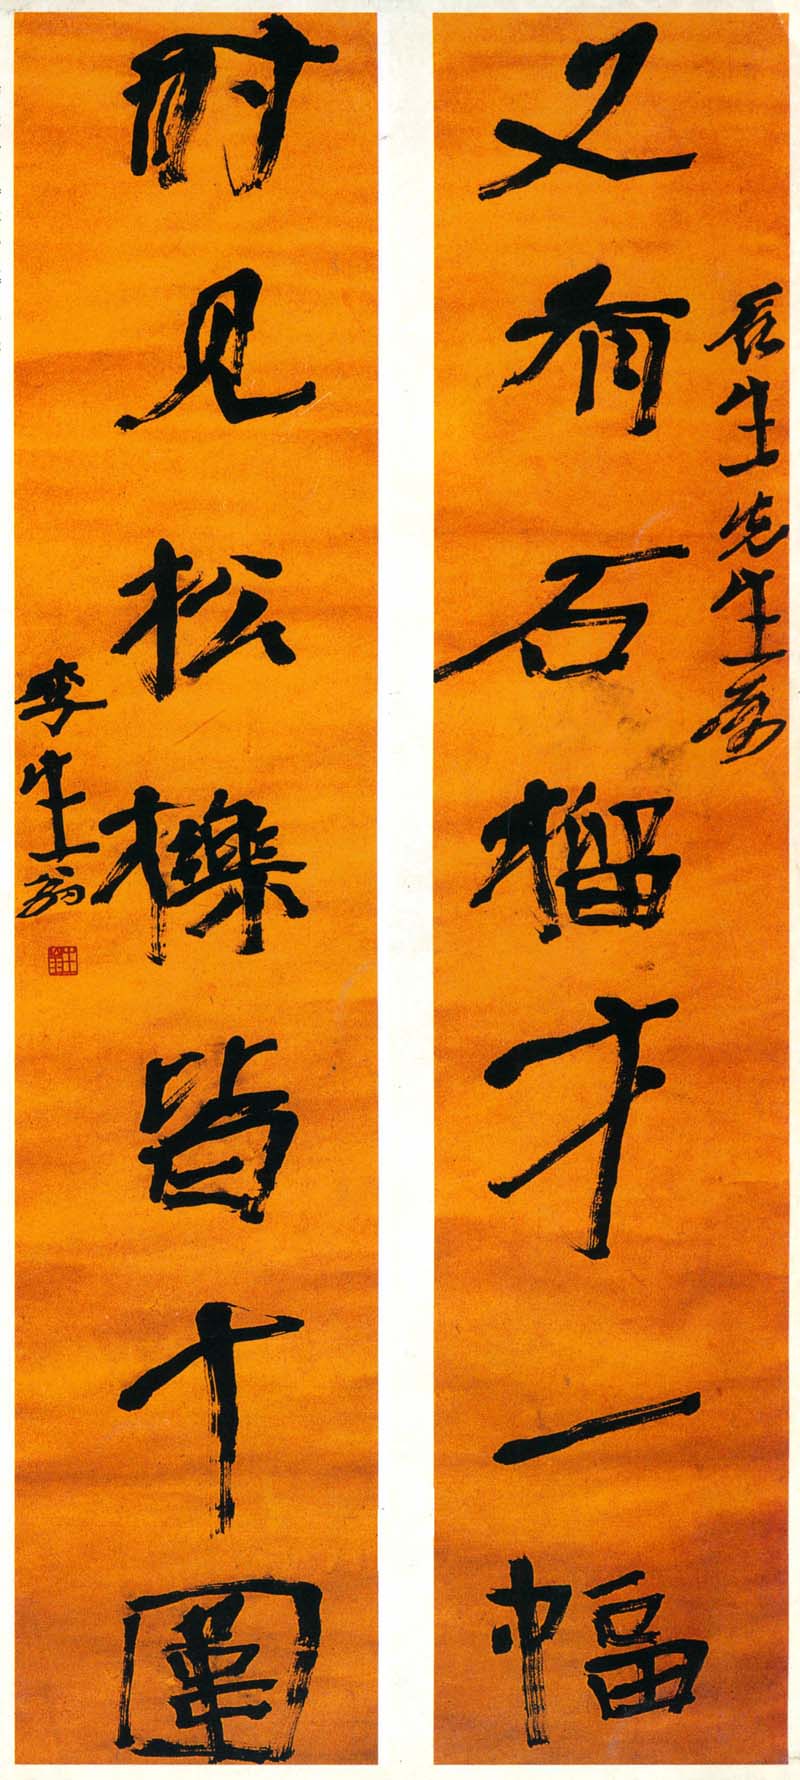 又有石榴才一幅
时见松櫟皆十圍
辰生先生属
李生翁